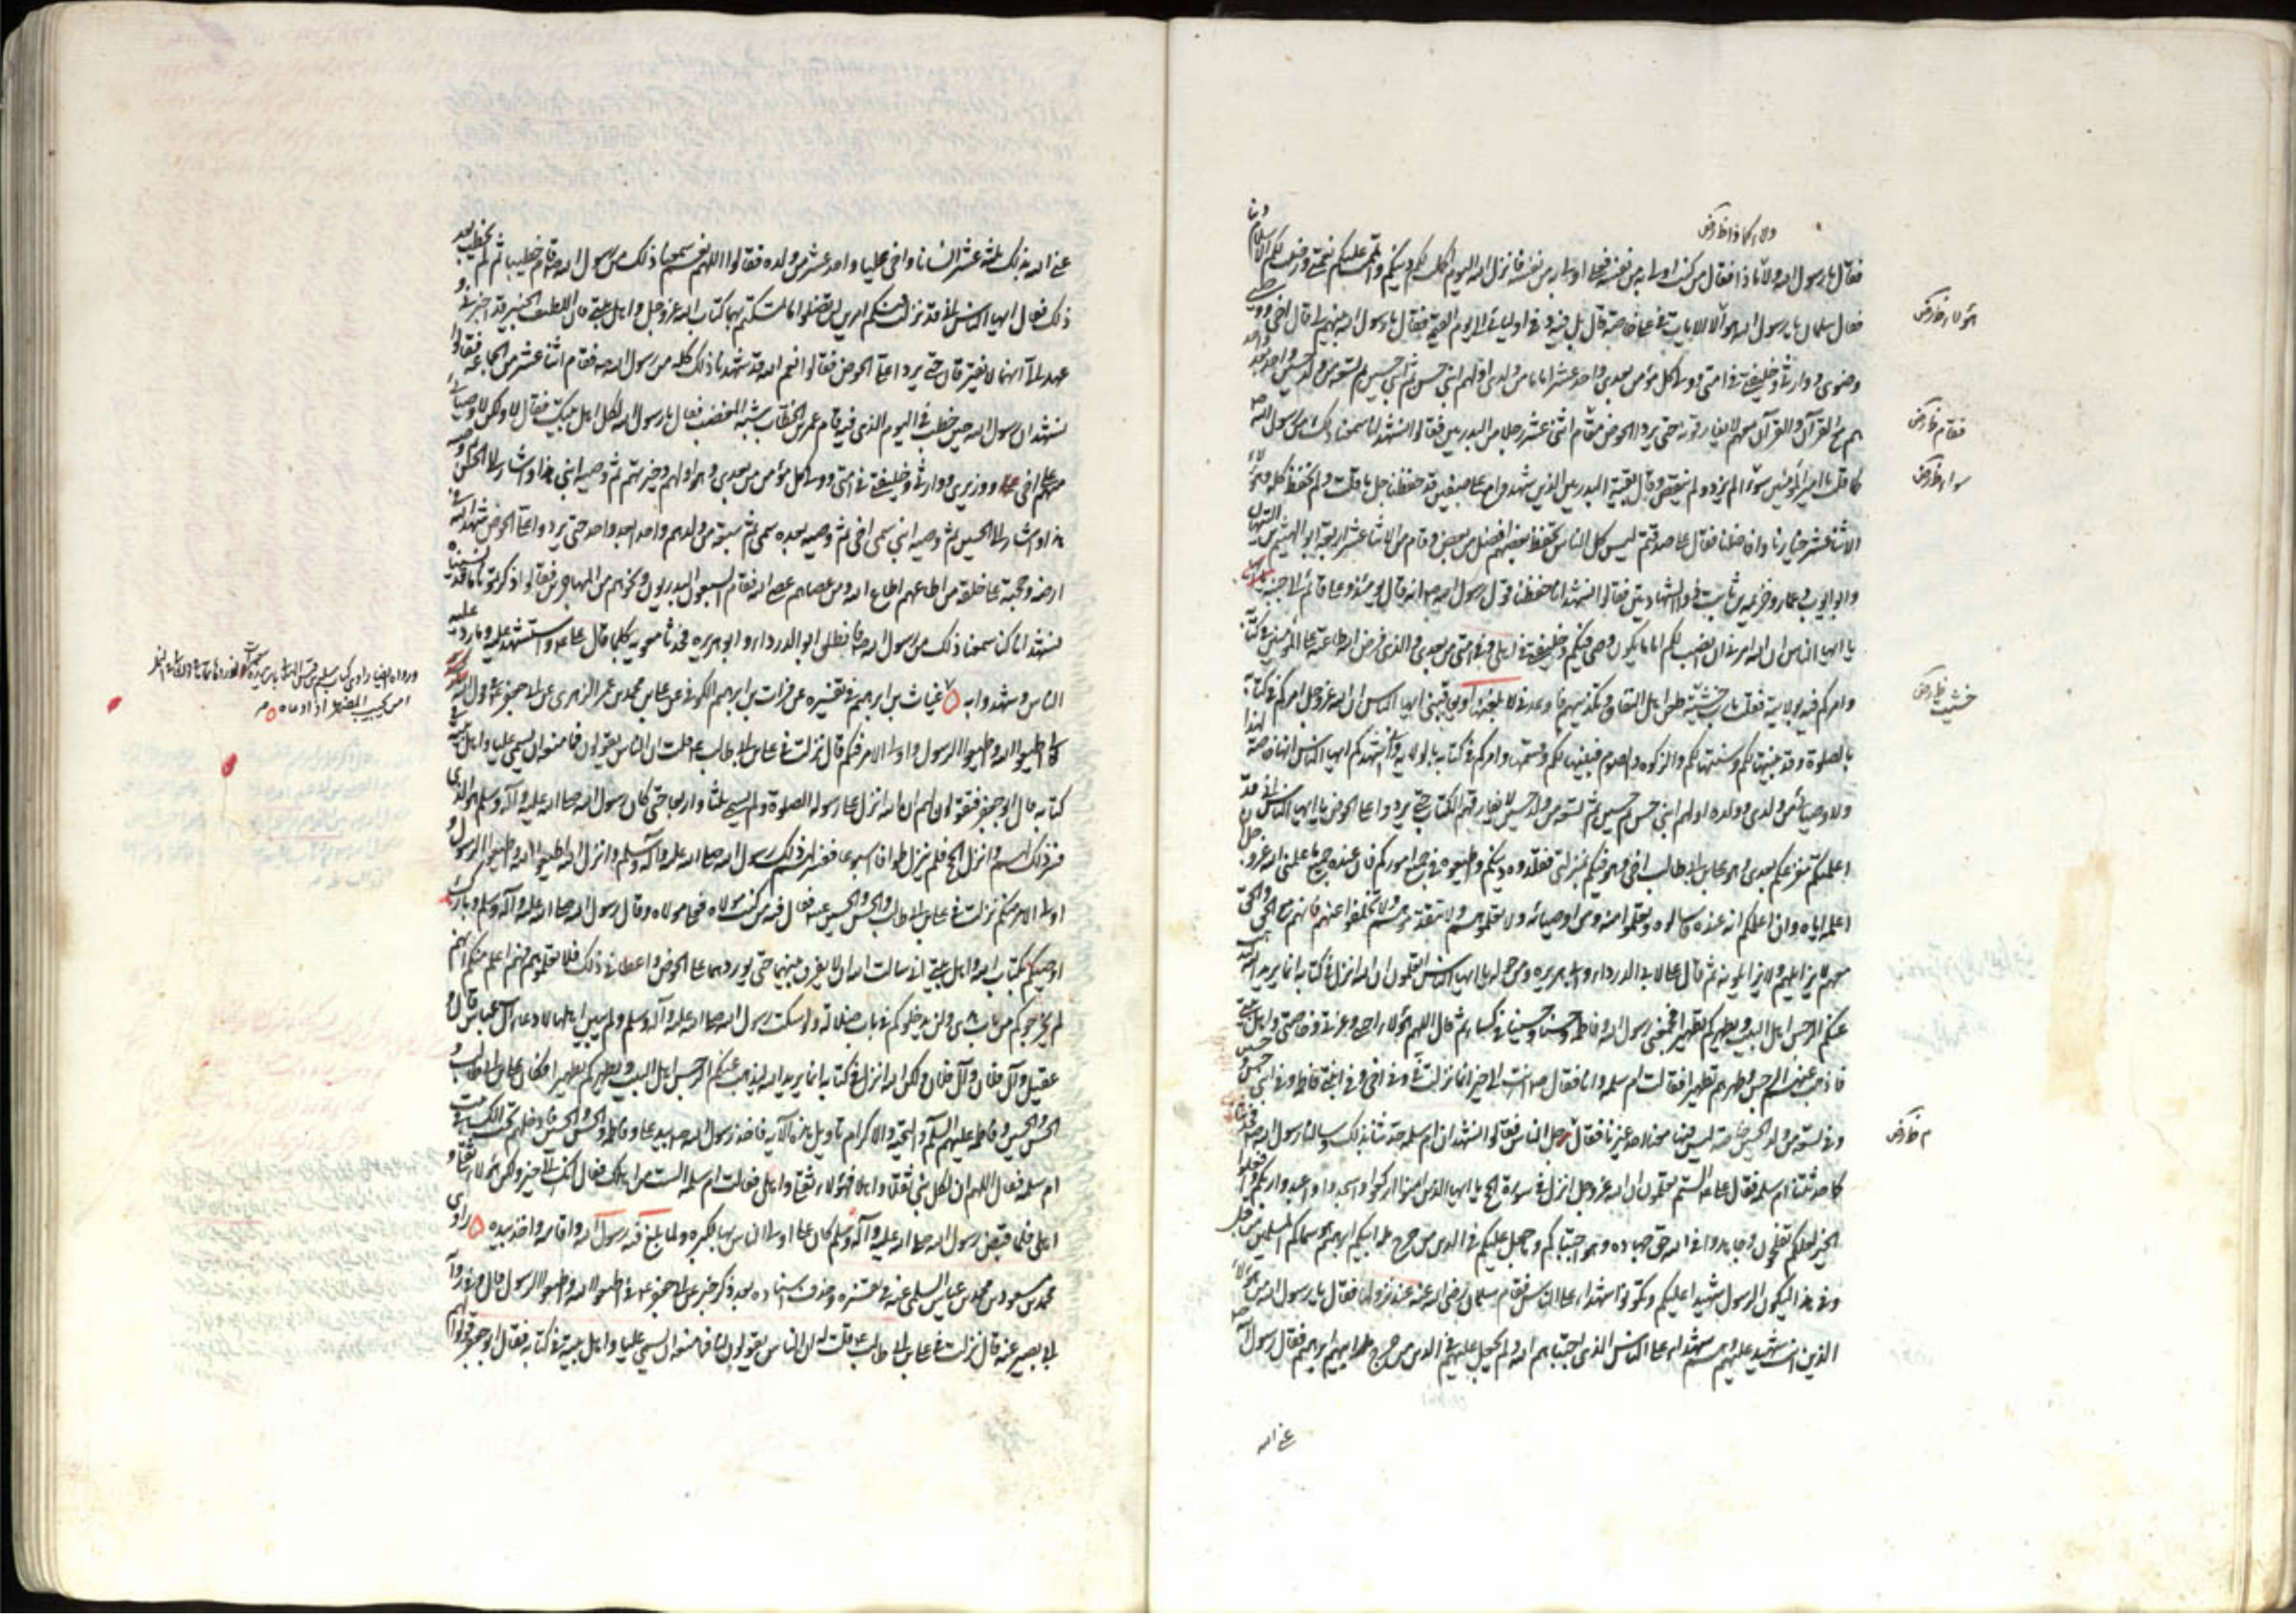 ولاء كماذا ظ كرض
فقال يا رسول الله ولاء ماذا فقال من كنت اولى به من نفسه فعلي اولى به من نفسه فانزل الله اليوم اكملت لكم دينكم واتممت عليكم نعمتي ورضيت لكم الاسلام دينا
فقال سلمان يا رسول الله هؤلاء الايات في علي خاصة قال بل فيه وفي اوليائي الى يوم القيمة فقال يا رسول الله بينهم لي قال اخي ووصيي
وصنوي ووارثي وخليفتي في امتي وولي كل مؤمن بعدي واحد عشر اماما من ولدي اولهم ابني حسن ثم ابني حسين ثم تسعة من ولد الحسين واحد بعد واحد
هم مع القرآن والقرآن معهم لا يفارقونه حتى يردوا الحوض فقام اثنى عشر رجلا من البدريين فقالوا نشهد انا سمعنا ذلك من رسول الله ص
كما قلت يا امير المؤمنين سواء لم يزد ولم ينقص وقال بقية البدريين الذين شهدوا مع علي صفين قد حفظنا جل ما قلت ولم نحفظ كله وهؤلاء
الاثنا عشر خيارنا وافاضلنا فقال علي صدقتم ليس كل الناس يحفظ بعضهم افضل من بعض وقام من الاثنا عشر اربعة ابو الهيثم بن التيهان
وابو ايوب وعمار وخزيمة بن ثابت ذو الشهادتين فقالوا نشهد انا حفظنا قول رسول الله ص انه قال يومئذ وعلي قائم الى جنبه
يا ايها الناس ان الله امرني ان انصب لكم اماما يكون وصيي فيكم وخليفتي في اهلي وفي امتي من بعدي والذي فرض الله طاعته على المؤمنين في كتابه
وامركم فيه بولايته فقلت يا رب خشية طعن اهل النفاق وتكذيبهم فاوعدني لابلغنها او يعاقبني ايها الناس ان الله عز وجل امركم في كتابه
بالصلوة وقد بينتها لكم وسننتها لكم والزكوة والصوم فبينتهما لكم وفسرتها وامركم في كتابه بالولاية واني اشهدكم ايها الناس انها خاصة لهذا
ولاوصيائي من ولدي وولده اولهم ابني حسن ثم حسين ثم تسعة من ولد الحسين لا يفارقون الكتاب حتى يردوا علي الحوض يا ايها الناس اني قد
اعلمتكم مفزعكم بعدي وهو علي بن ابي طالب اخي وهو فيكم بمنزلتي فقلدوه دينكم واطيعوه في جميع اموركم فان عنده جميع ما علمني الله عز وجل
اعلمه اياه وان اعلمكم انه عنده فاسألوه وتعلموا منه ومن اوصيائه ولا تعلموهم ولا تتقدموهم ولا تتخلفوا عنهم فانهم مع الحق والحق
معهم لا يزايلهم ولا يزايلونه ثم قال علي لابي الدرداء وابي هريرة ومن حوله يا ايها الناس اتعلمون ان الله انزل في كتابه انما يريد الله ليذهب
عنكم الرجس اهل البيت ويطهركم تطهيرا فجمعني رسول الله وفاطمة وحسنا وحسينا في كساء ثم قال اللهم هؤلاء احبتي وعترتي وخاصتي واهل بيتي
فاذهب عنهم الرجس وطهرهم تطهيرا فقالت ام سلمة وانا فقال ص انت الى خير انما نزلت في وفي اخي وفي ابنتي فاطمة وفي ابني حسن وحسين
وفي تسعة من ولد الحسين خاصة ليس فيها معنا احد غيرنا فقال جل الناس فقالوا نشهد ان ام سلمة حدثتنا بذلك وسالنا رسول الله ص فحدثنا
كما حدثتنا ام سلمة فقال علي الستم تعلمون ان الله عز وجل انزل في سورة الحج يا ايها الذين امنوا اركعوا واسجدوا واعبدوا ربكم وافعلوا
الخير لعلكم تفلحون وجاهدوا في الله حق جهاده وهو اجتباكم وما جعل عليكم في الدين من حرج ملة ابيكم ابراهيم هو سماكم المسلمين من قبل
وفي هذا ليكون الرسول شهيدا عليكم وتكونوا شهداء على الناس فقام سلمان رضي الله عنه عند نزولها فقال يا رسول الله من هؤلاء
الذين انت شهيد عليهم وهم شهداء على الناس الذين اجتباهم الله ولم يجعل عليهم في الدين من حرج ملة ابيهم ابراهيم فقال رسول الله ص
عنى الله
هؤلاء ظ كرض
فقام ظ كرض
سواء ظ كرض
خشيت ظ كرض
م ظ كرض
عنى الله بذلك ثلثة عشر انسانا واخي عليا واحد عشر من ولده فقالوا اللهم نعم سمعنا ذلك من رسول الله وقام خطيبا ثم لم يخطب بعد
ذلك فقال ايها الناس اني قد تركت فيكم امرين لن تضلوا ما تمسكتم بهما كتاب الله عز وجل واهل بيتي فان اللطيف الخبير قد اخبرني و
عهد الي انهما لا يفترقان حتى يردا علي الحوض فقالوا نعم اللهم قد شهدنا ذلك كله من رسول الله ص فقام اثنا عشر من الجماعة فقالوا
نشهد ان رسول الله حين خطب في اليوم الذي فيه قام عمر بن الخطاب شبه المغضب فقال يا رسول الله لكل اهل بيتك فقال لا ولكن لاوصيائي
منهم علي اخي ووزيري ووارثي وخليفتي في امتي وولي كل مؤمن من بعدي وهو اولهم وخيرهم ثم وصيه ابني هذا واشار الى الحسن ثم وصيه
هذا واشار الى الحسين ثم وصيه ابني سمي اخي ثم وصيه بعده سمي ثم سبعة من ولدهم واحد بعد واحد حتى يردوا علي الحوض شهداء لله في
ارضه وحجته على خلقه من اطاعهم اطاع الله ومن عصاهم عصى الله فقام السبعون البدريون ونحوهم من المهاجرين فقالوا ذكرتمونا ما قد نسيناه
نشهد انا كنا سمعنا ذلك من رسول الله ص فانطلق ابو الدرداء وابو هريرة فحدثا معوية بكلما قال علي ع واستشهد عليه وما رد عليه
الناس وشهدوا به غياث بن ابرهيم في تفسيره عن فرات بن ابرهيم الكوفي عن علي بن محمد بن عمر الزهري عن ابي جعفر ع في قول الله
كما اطيعوا الله واطيعوا الرسول واولي الامر منكم قال نزلت في علي بن ابي طالب ع قلت ان الناس يقولون فما منعه ان يسمي عليا واهل بيته في
كتابه قال ابو جعفر فتقولون لهم ان الله انزل على رسوله الصلوة ولم يسم ثلثا واربعا حتى كان رسول الله صلى الله عليه وآله وسلم هو الذي
فسر ذلك لهم وانزل الحج فلم ينزل طوافا اسبوعا ففسر لهم ذلك رسول الله صلى الله عليه وآله وسلم وانزل الله اطيعوا الله واطيعوا الرسول و
اولي الامر منكم نزلت في علي بن ابي طالب والحسن والحسين ع فقال فيه من كنت مولاه فعلي مولاه وقال رسول الله صلى الله عليه وآله وسلم وبارك
اوصيكم بكتاب الله واهل بيتي اني سالت الله ان لا يفرق بينهما حتى يوردهما علي الحوض واعطاني ذلك فلا تعلموهم فهم اعلم منكم انهم
لم يخرجوكم من باب هدى ولن يدخلوكم في باب ضلالة ولو سكت رسول الله صلى الله عليه وآله وسلم ولم يبين اهلها لادعاها آل عباس وآل
عقيل وآل فلان وآل فلان ولكن الله انزل في كتابه انما يريد الله ليذهب عنكم الرجس اهل البيت ويطهركم تطهيرا فكان علي بن ابي طالب و
الحسن والحسين وفاطمة عليهم السلام والتحية والاكرام تاويل هذه الآية فاخذ رسول الله ص بيد علي وفاطمة والحسن والحسين فادخلهم تحت الكساء في بيت
ام سلمة فقال اللهم ان لكل نبي ثقلا واهلا فهؤلاء ثقلي واهلي فقالت ام سلمة الست من اهلك فقال انك الى خير ولكن هؤلاء ثقلي و
اهلي فلما قبض رسول الله صلى الله عليه وآله وسلم كان علي اولى الناس بها لكبره ولما بلغ فيه رسول الله واقامه واخذ بيده
محمد بن مسعود بن محمد بن عياش السلمي عنه في تفسيره وحذف اسناده بعد ذكر خبر عن ابي جعفر ع في اطيعوا الله واطيعوا الرسول قال وفي رواية
ابي بصير عنه قال نزلت في علي بن ابي طالب ع قلت له ان الناس يقولون لنا فما منعه ان يسمي عليا واهل بيته في كتابه فقال ابو جعفر قولوا لهم